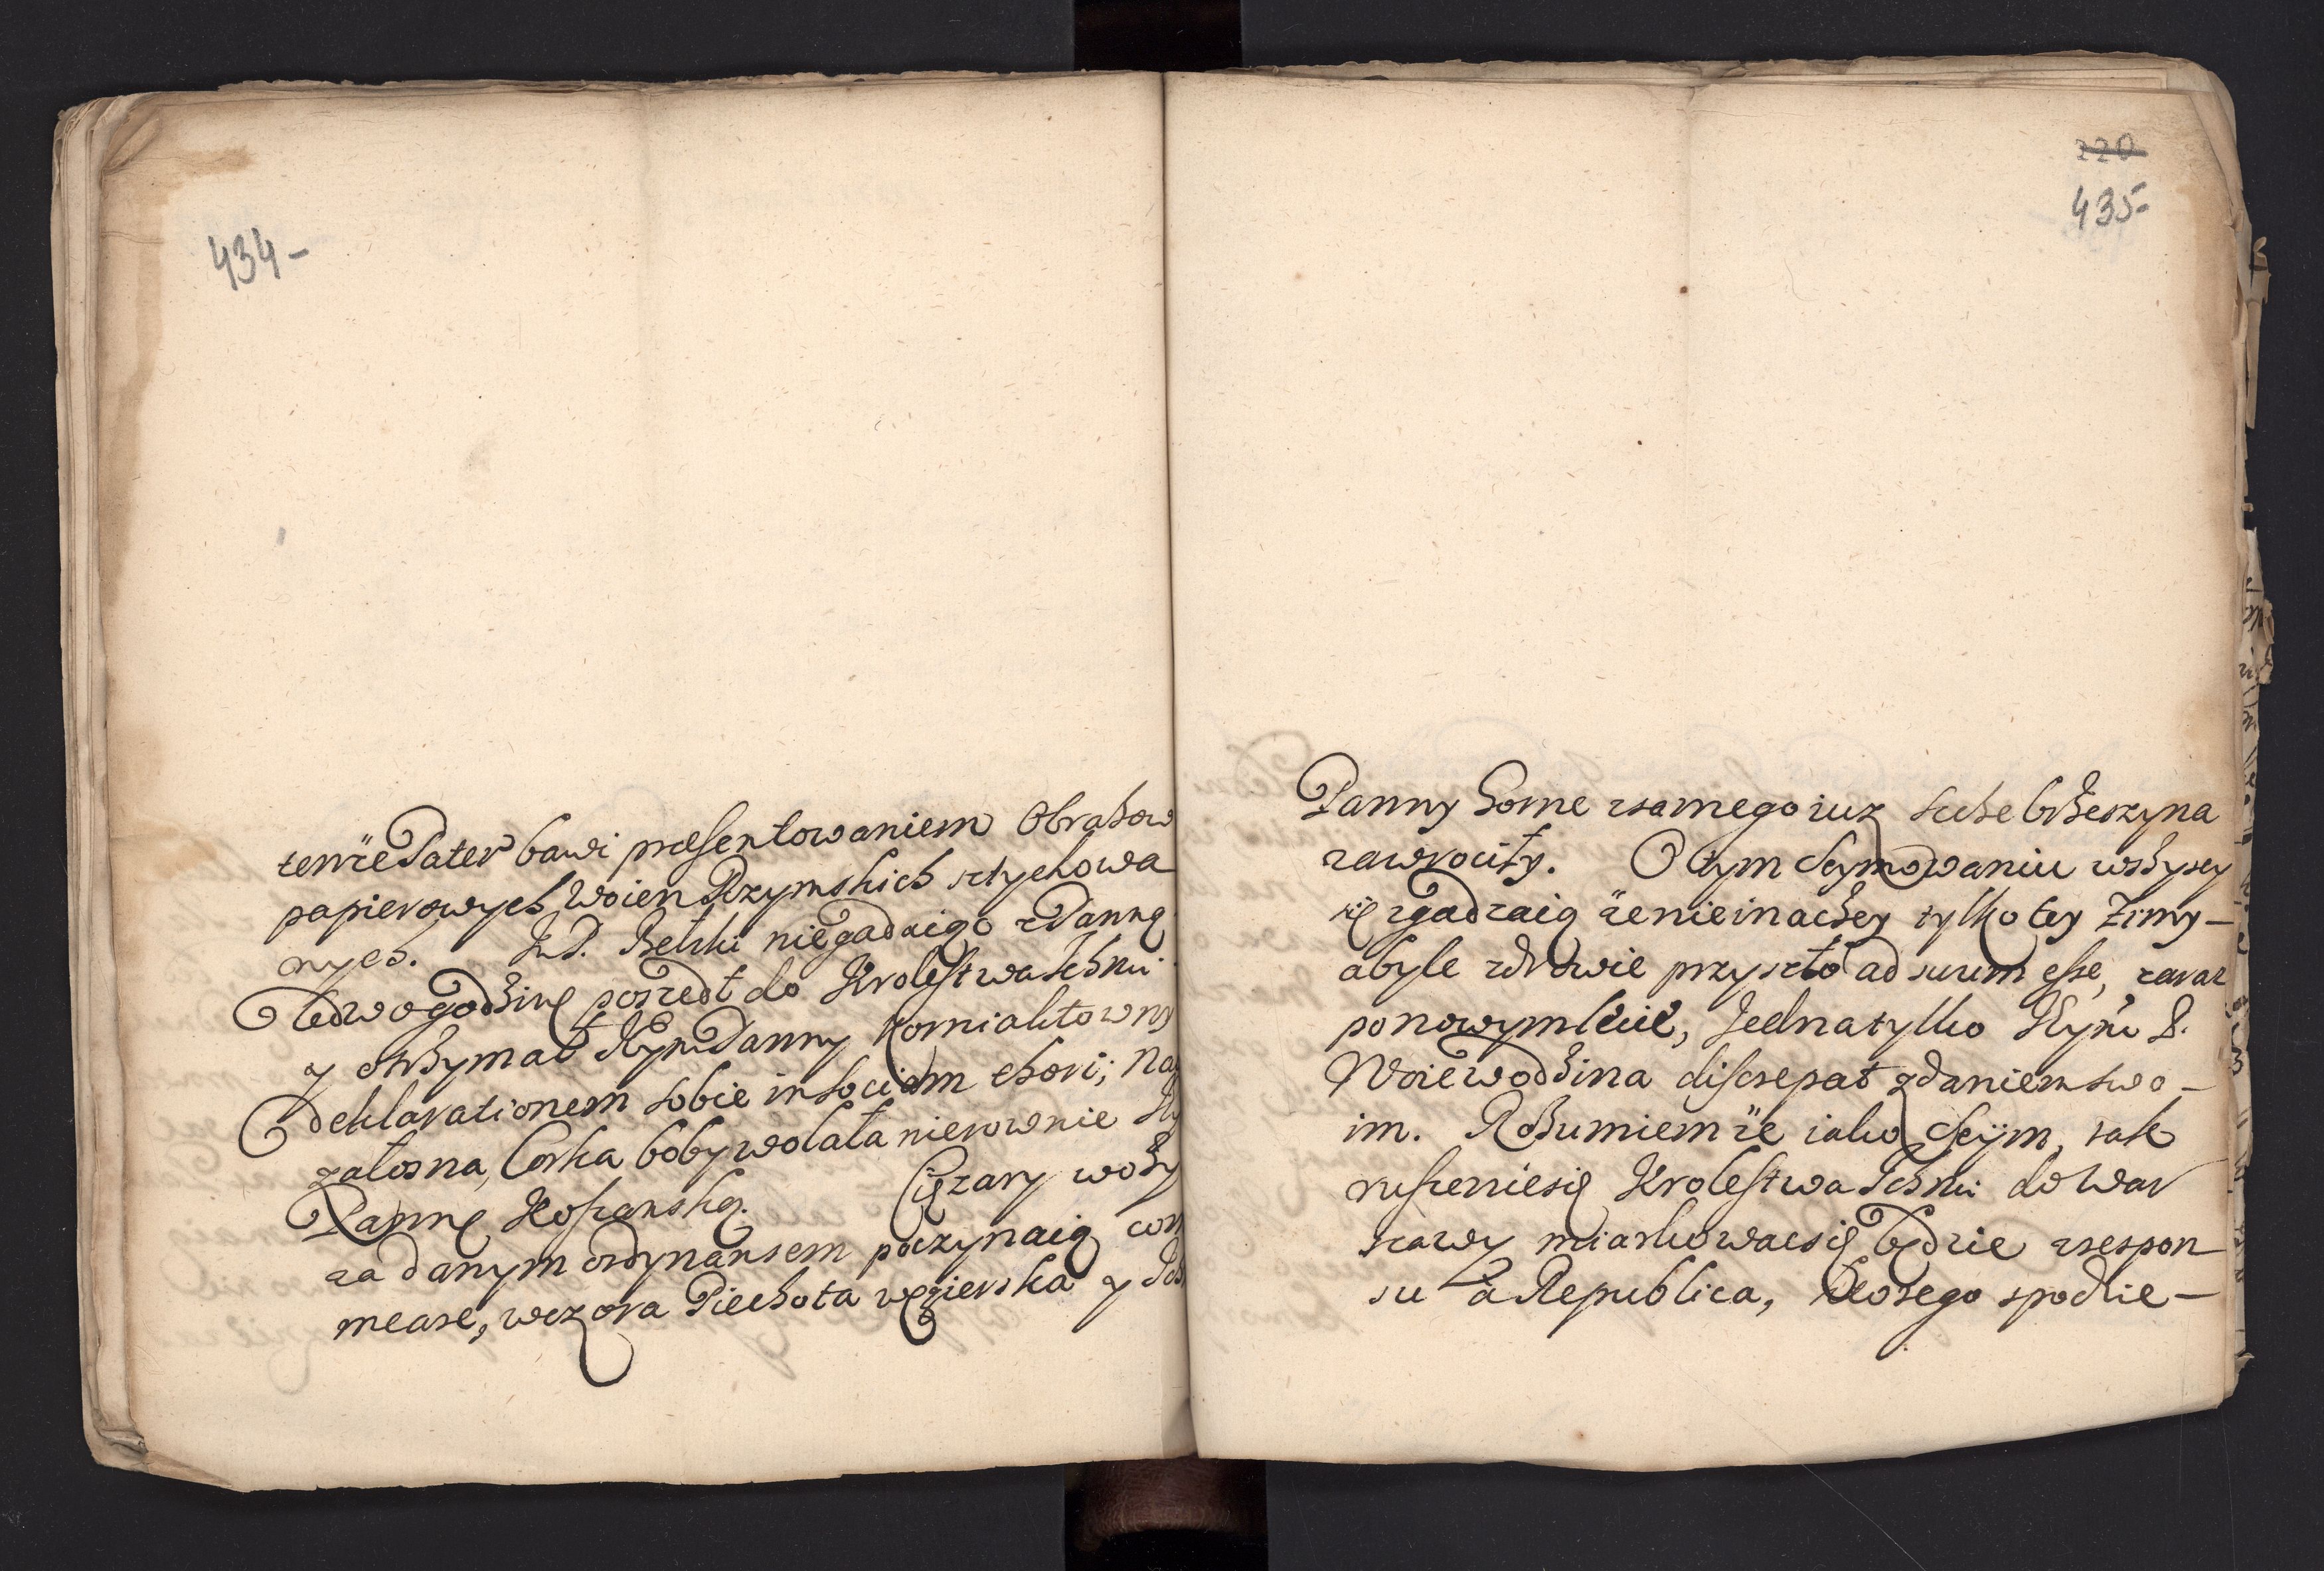 434-
tenże Pater bawi præsentowaniem Obrazow
papierowych Woien Rzymskich sztychowa
nych. JP. Betski niegadaiąc z Panną
Ledwogodzinę poszedt do Krolestwa Ichmi
y otrzymat Panny Korniaktowny
deklarationem sobie in sociam thori; Na
załosna, Corka boby wolała nierownie
Pannę Kossanską. Ciężary wozy
za danym ordynansem poczynaią com
meare, wczora Piechota węgierska y
220
435-
Panny Horne zsamego iuz Brzeszyna
zawrociły. O tym Seymowaniu wszyscy
się zgadzaią że nie inaczey tylko tey Zimy-
abyle zdrowie przyszło ad suum esse, zaraz
ponowymlecie, Jedna tylko Jeymć P.
Woiewodzina discrepat zdaniem swo-
im. Rozumiem że iako Seÿm, tak
ruszeniesię Krolestwa Ichmi do War
szawy miarkowacsię będzie zrespon
su à Republica, ktorego spodzie-